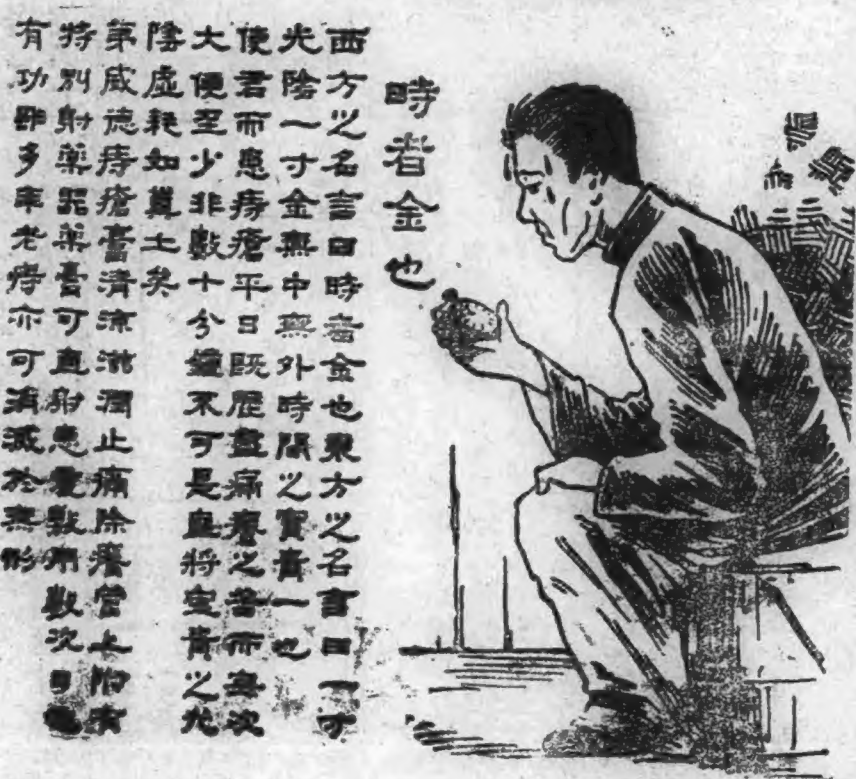 時者金也
西方之名言曰時者金也東方之名言曰一寸
光陰一寸金無中無外時間之寶貴一也
使君而患痔瘡平日既歷盡痛癢之苦而每次
大便至少非數十分鐘不可是直將寶貴之光
陰虛耗如糞土矣
第威德痔瘡膏清涼滋潤止痛除癢管上附有
特別射藥器藥膏可直射患處數用數次
有功即多年老痔亦可消滅於無形